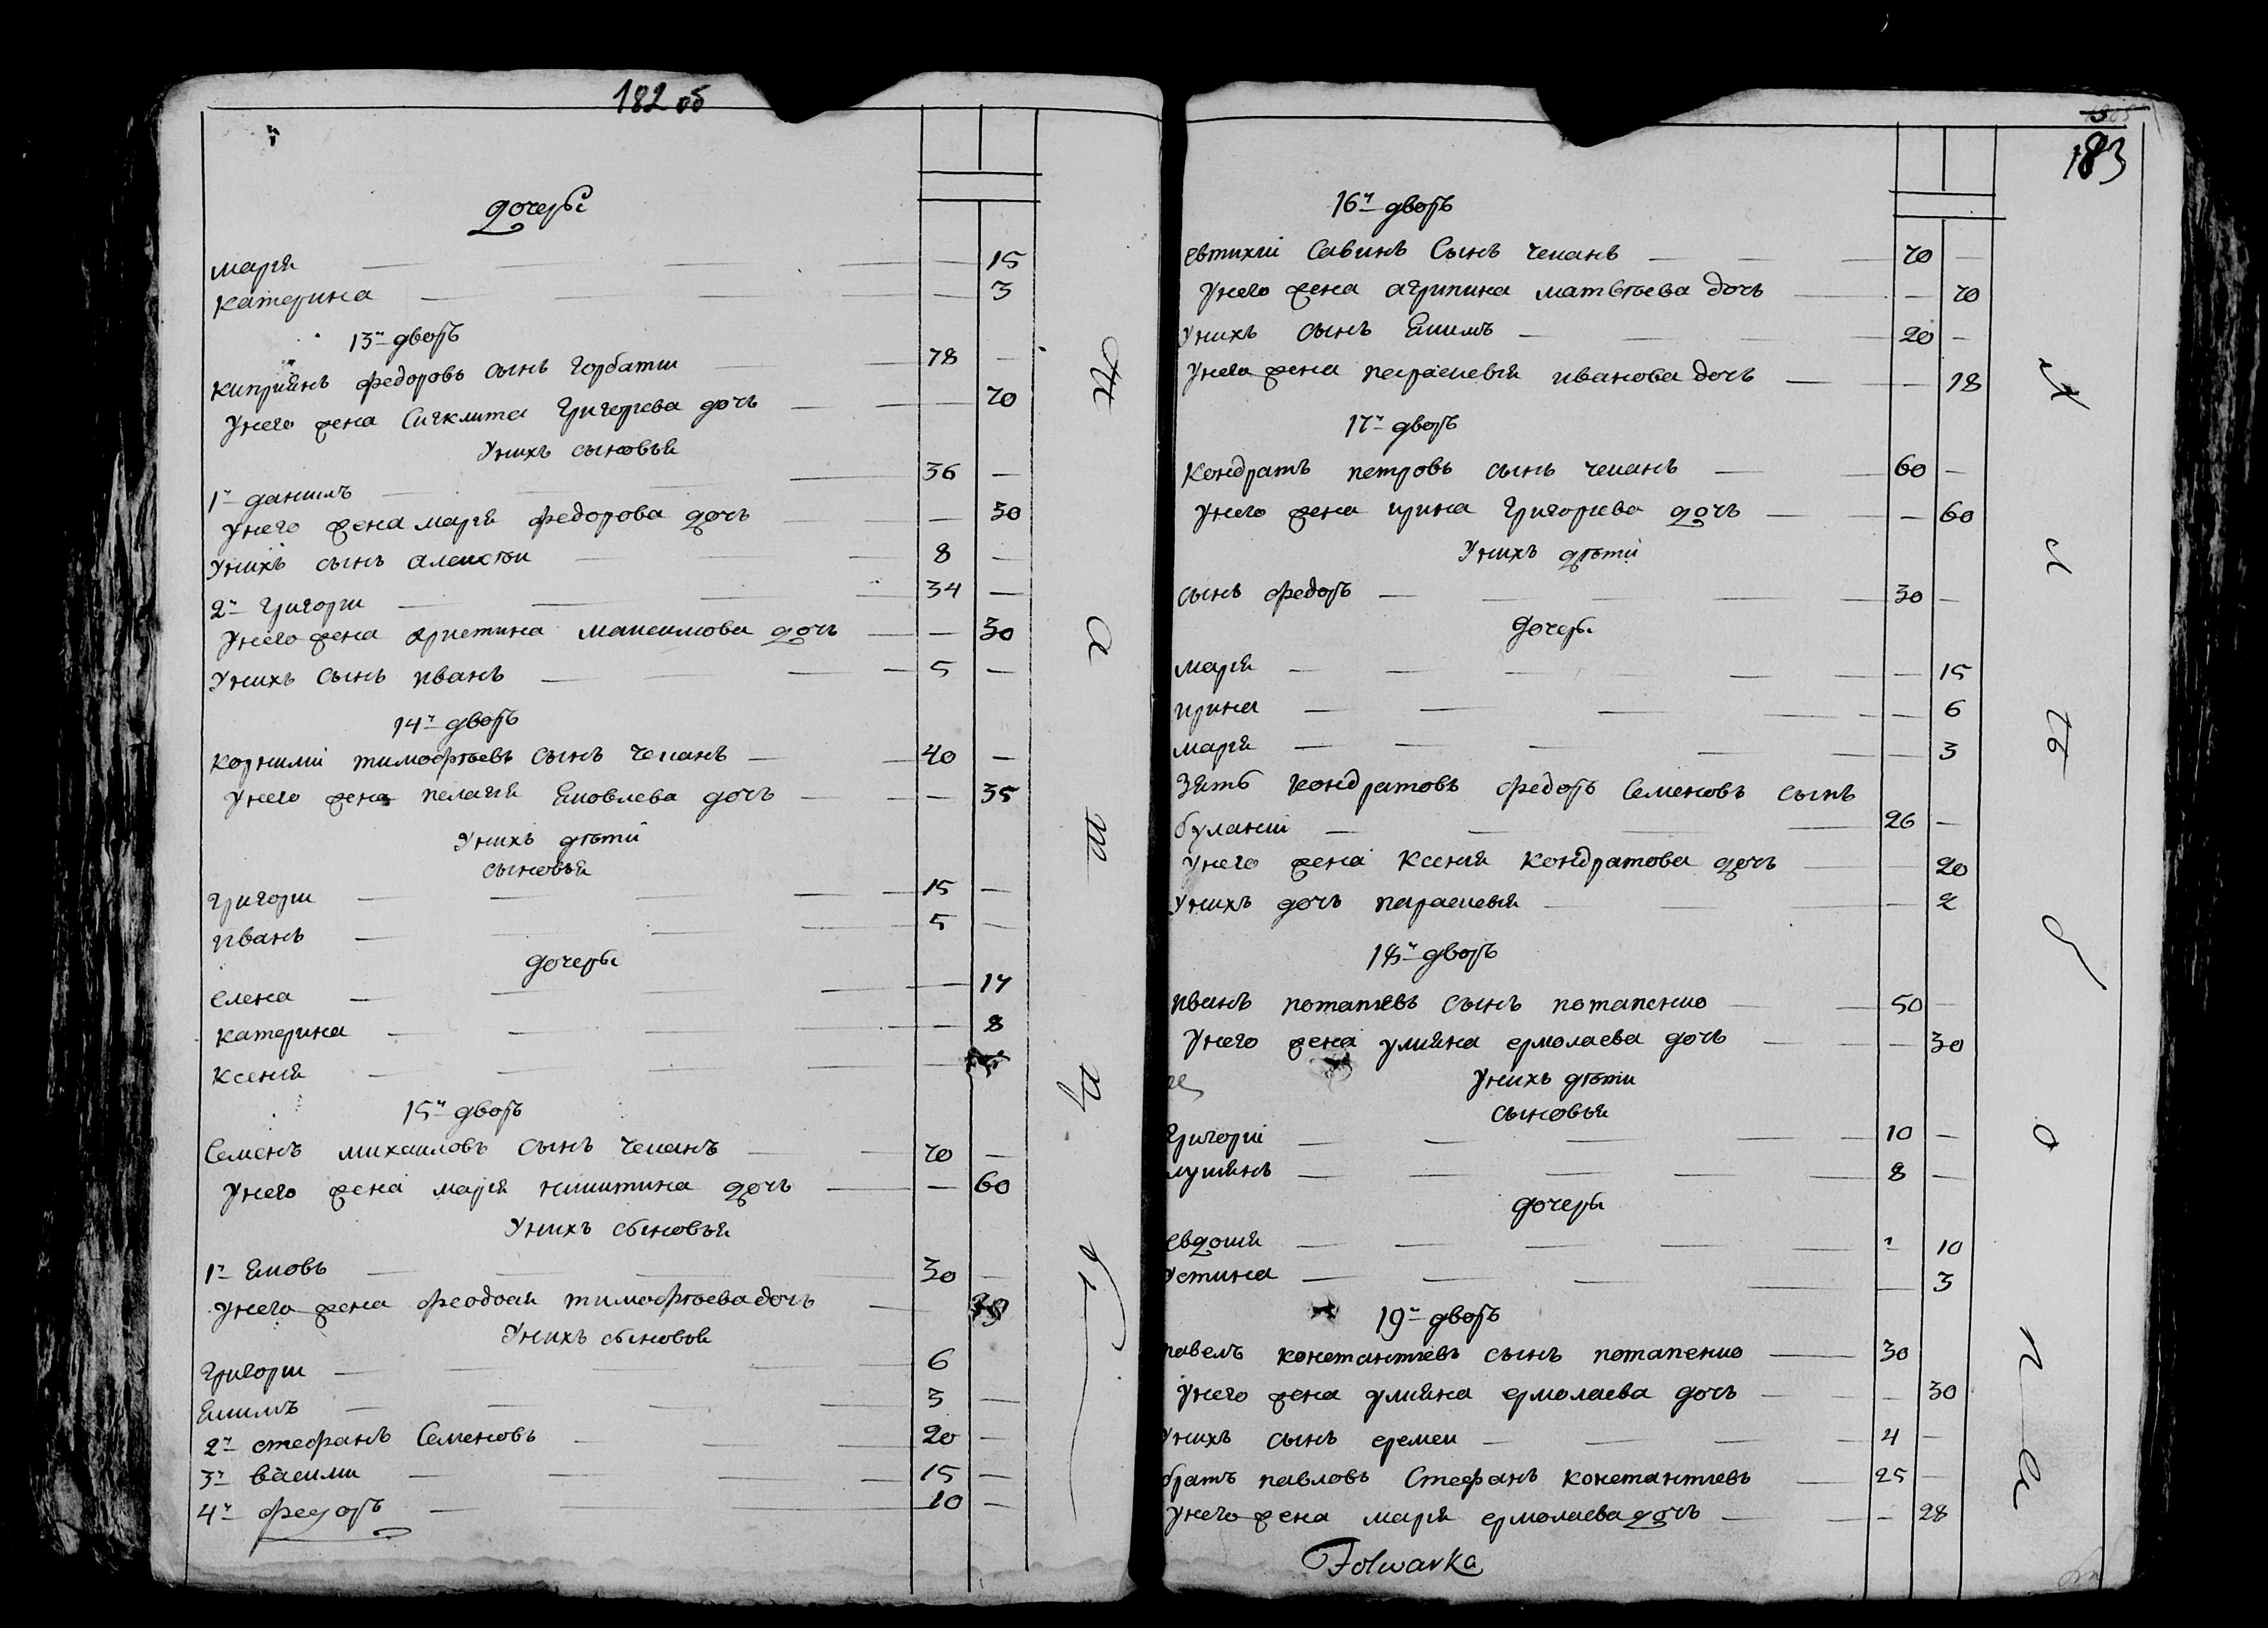 182 об
дочеры
мария 15
катерина 3
13й дворъ
киприянъ федоровъ сынъ горбатии 78
Унего жена Сигклита Григорева дочь 70
Унихъ сыновья
1й данилъ 36
Унего жена мария федорова дочь 30
Унихъ сынъ алексѣи 8
2й Григори 34
Унего жена христина максимова дочь 30
Унихъ сынъ иванъ 5
14й дворъ
корнилий тимофѣевъ сынъ чепанъ 40
Унего жена пелагия Яковлева дочь 35
Унихъ дѣти
сыновья
григори 15
иванъ 5
дочеры
елена 17
катерина 8
ксения
15й дворъ
Семенъ михаиловъ сынъ чепанъ 70
Унего жена мария никитина дочь 60
Унихъ сыновья
1й Яковъ 30
Унего жена феодосия тимофѣева дочь
Унихъ сыновья
Григори 6
Якимъ 3
2й стефанъ Семеновъ 20
3й василии 15
4й федоръ 10
183
16й дворъ
евтихий Савинъ Сынъ чепанъ 70
Унего жена агрипина матвѣева дочь 70
Унихъ сынъ Якимъ 20
Унего жена параскевия иванова дочь 18
17й дворъ
Кондратъ петровъ сынъ чепанъ 60
Унего жена ирина Григорева дочь 60
Унихъ дѣти
сынъ федоръ 30
дочеры
мария 15
ирина 6
мария 3
Зять кондратовъ федоръ Семеновъ сынъ
буланий 26
Унего жена Ксения кондратова дочь 20
Унихъ дочь параскевия 2
18й дворъ
иванъ потапиевъ сынъ потапенко 50
Унего жена улияна ермолаева дочь 30
Унихъ дѣти
сыновья
Григорий 10
лукиянъ 8
дочеры
евдокия 10
Устина 3
19й дворъ
павелъ константиевъ сынъ потапенко 30
Унего жена улияна ермолаева дочь 30
Унихъ сынъ еремеи 4
братъ павловъ Стефанъ константиевъ 25
Унего жена мария ермолаева дочь 28
Folwarka